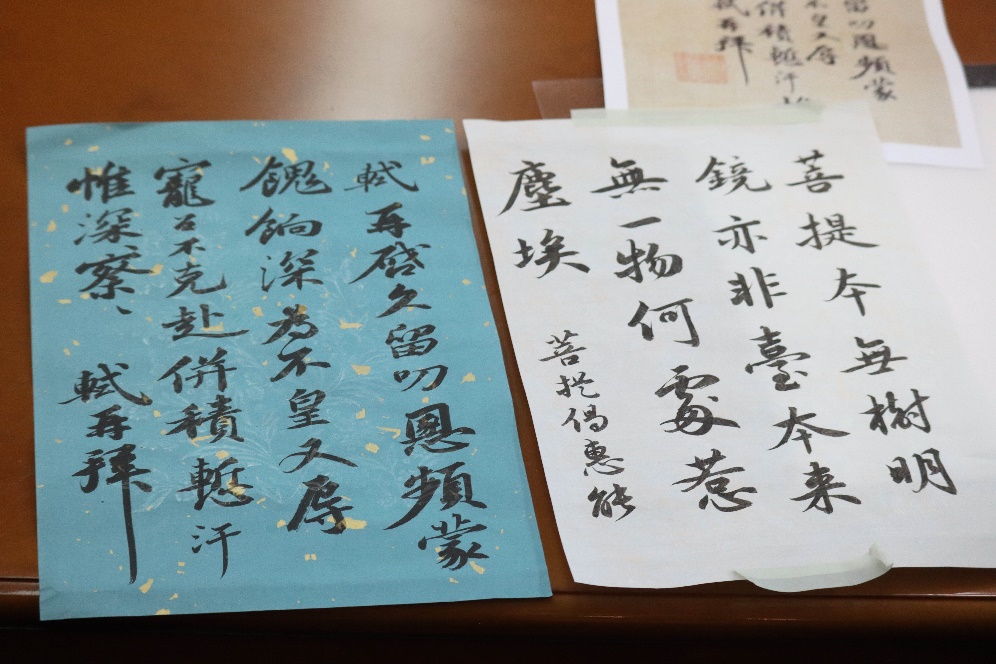 留叨恩頻蒙
不皇又辱
併積慙汗
軾再拜
菩提本無樹明
鏡亦非臺本来
無一物何處惹
塵埃
菩提偈惠能
軾再啓久留叨恩頻蒙
餽餉深為不皇又辱
寵召不克赴併積慙汗
惟深察、 軾再拜